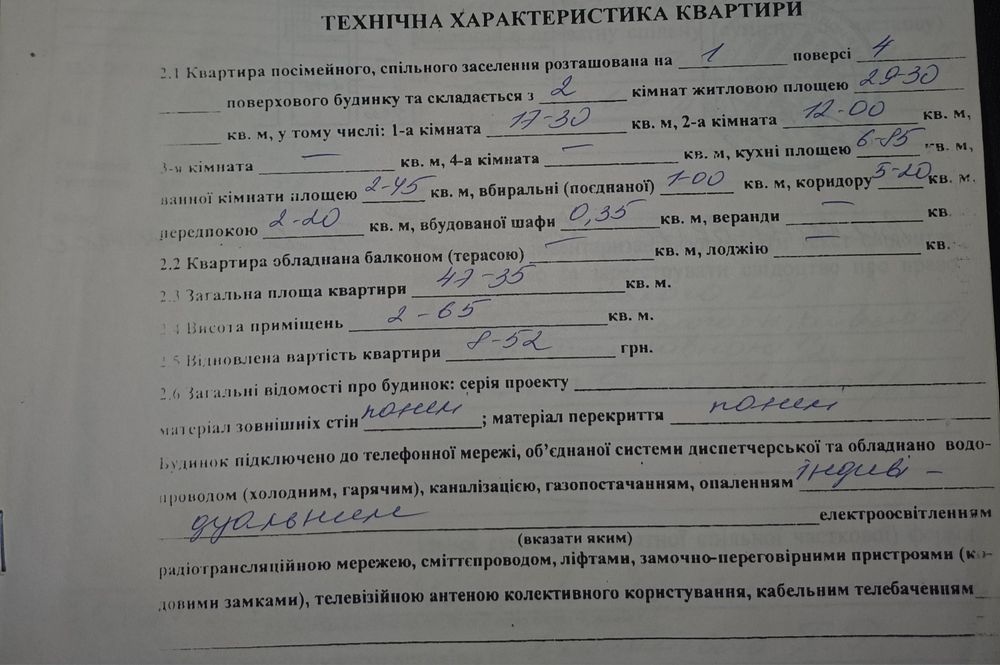 ТЕХНІЧНА ХАРАКТЕРИСТИКА КВАРТИРИ
2.1 Квартира посімейного, спільного заселення розташована на 1 поверсі 4
поверхового будинку та складається з 2 кімнат житловою площею 29-30
кв. м, у тому числі: 1-а кімната 17-30 кв. м, 2-а кімната 12-00 кв. м,
3-я кімната — кв. м, 4-а кімната — кв. м, кухні площею 6-85 кв. м,
ванної кімнати площею 2-45 кв. м, вбиральні (поєднаної) 1-00 кв. м, коридору 5-20 кв. м.
передпокою 2-20 кв. м, вбудованої шафи 0,35 кв. м, веранди — кв
2.2 Квартира обладнана балконом (терасою) — кв. м, лоджію — кв.
2.3 Загальна площа квартири 47-35 кв. м.
2.4 Висота приміщень 2-65 кв. м.
2.5 Відновлена вартість квартири 8-52 грн.
2.6 Загальні відомості про будинок: серія проекту
матеріал зовнішніх стін панелі; матеріал перекриття панелі
Будинок підключено до телефонної мережі, об’єднаної системи диспетчерської та обладнано водо-
проводом (холодним, гарячим), каналізацією, газопостачанням, опаленням індиві-
дуальним електроосвітленням
(вказати яким)
радіотрансляційною мережею, сміттєпроводом, ліфтами, замочно-переговірними пристроями (ко-
довими замками), телевізійною антеною колективного користування, кабельним телебаченням